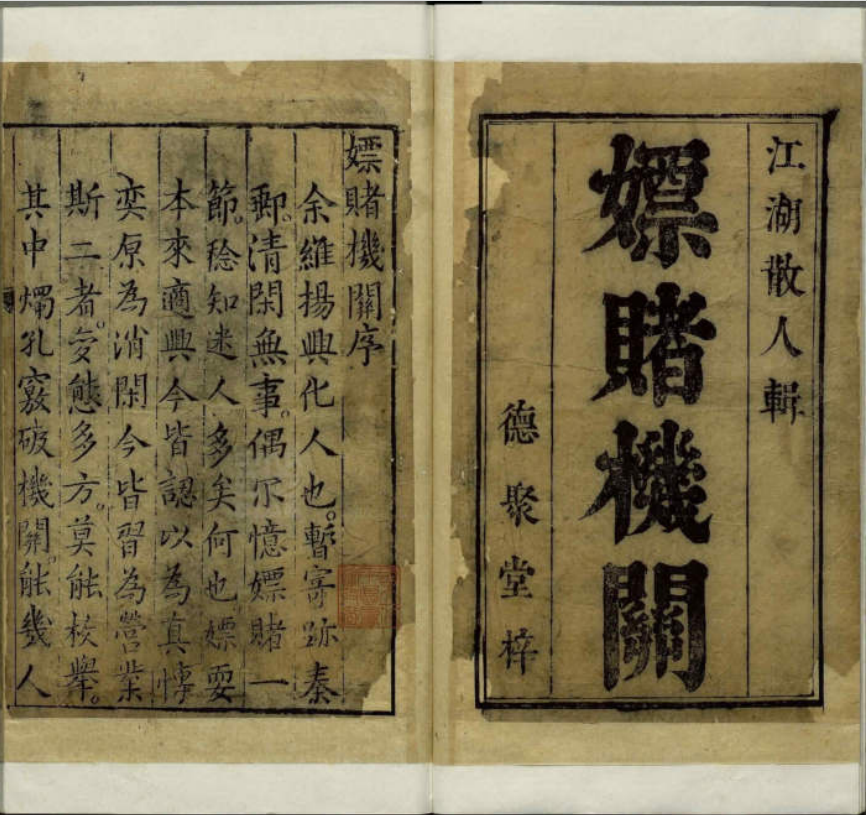 江湖散人輯
嫖賭機關
德聚堂梓
嫖賭機關序
余維揚興化人也。暫寄跡秦
郵。清閑無事。偶尔憶嫖賭一
節。稔知迷人多矣何也嫖耍
本來適興今皆認以為真博
奕原為消閑今皆習為營業
斯二者。変態多方。莫能枚舉。
其中燭孔竅破機關。能幾人